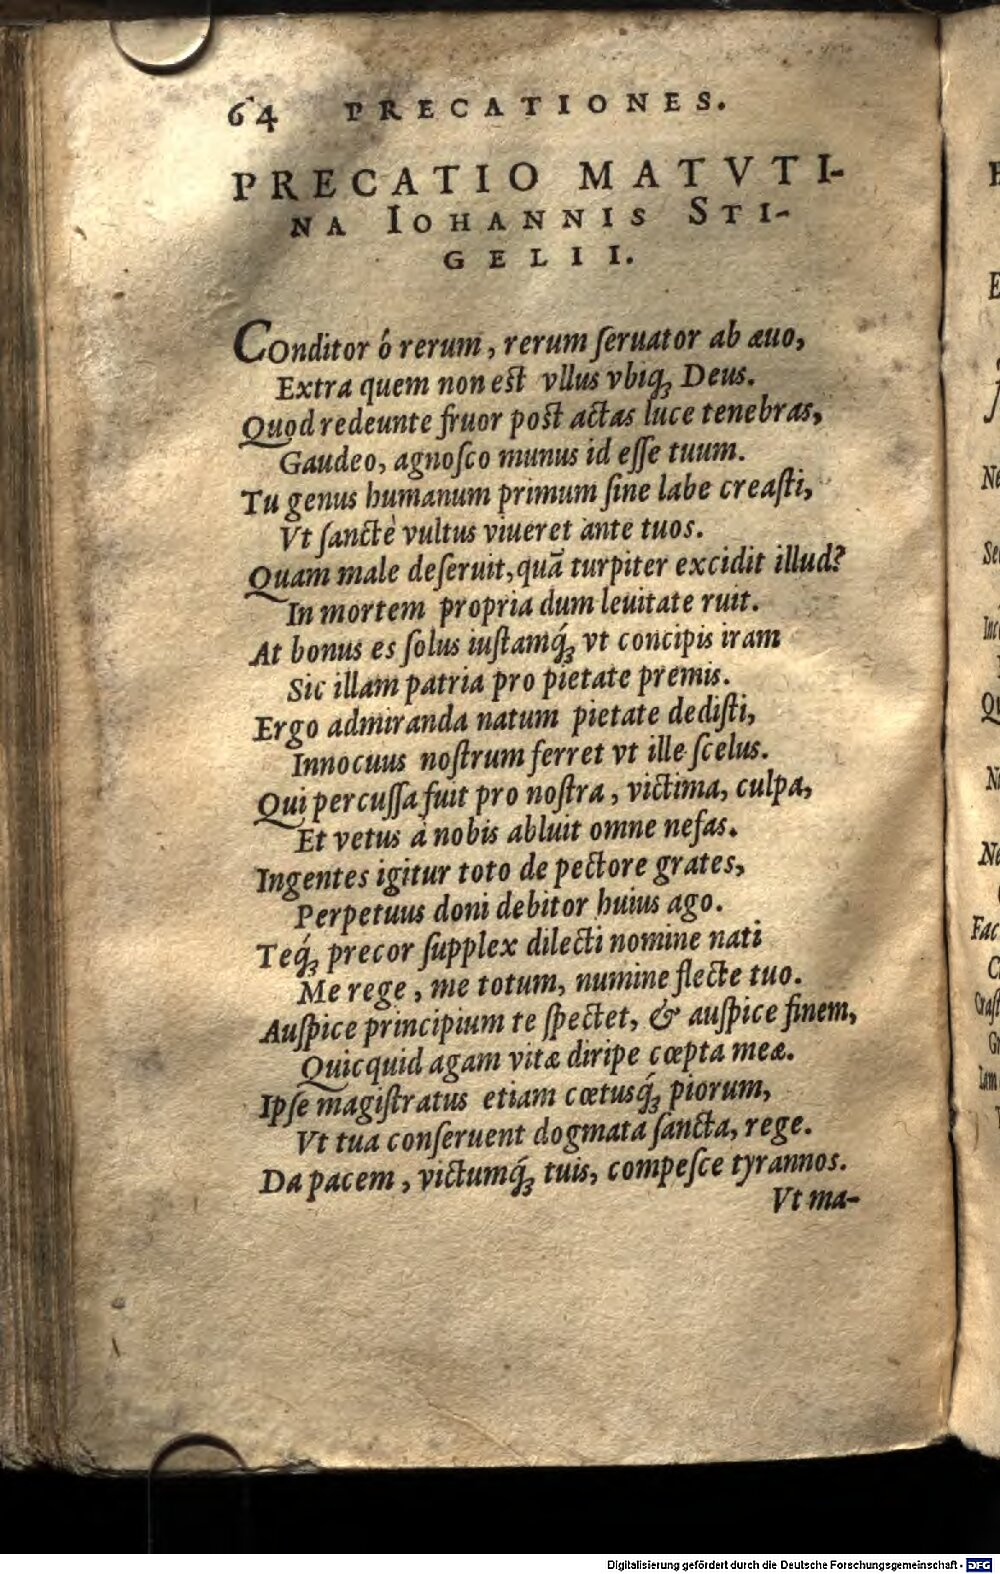 64 PRECATIONES.
PRECATIO MATVTI-
NA IOHANNIS STI-
GELII.
COnditor ó rerum, rerum ſeruator ab æuo,
Extra quem non est vllus vbiqꝫ Deus.
Quod redeunte fruor post actas luce tenebras,
Gaudeo, agnoſco munus id eſſe tuum.
Tu genus humanum primum ſine labe creaſti,
Vt ſanctè vultus viueret ante tuos.
Quam male deſeruit, quā turpiter excidit illud?
In mortem propria dum leuitate ruit.
At bonus es ſolus iuſtamq́ꝫ vt concipis iram
Sic illam patria pro pietate premis.
Ergo admiranda natum pietate dediſti,
Innocuus noſtrum ferret vt ille ſcelus.
Qui percuſſa fuit pro noſtra, victima, culpa,
Et vetus à nobis abluit omne nefas.
Ingentes igitur toto de pectore grates,
Perpetuus doni debitor huius ago.
Teq́ꝫ precor ſupplex dilecti nomine nati
Me rege, me totum, numine flecte tuo.
Auſpice principium te ſpectet, & auſpice finem,
Quicquid agam vitæ diripe cœpta meæ.
Ipſe magiſtratus etiam cœtusq́ꝫ piorum,
Vt tua conſeruent dogmata ſancta, rege.
Da pacem, victumq́ꝫ tuis, compeſce tyrannos.
Vt ma-
Digitalisierung gefördert durch die Deutsche Forschungsgemeinschaft - DFG